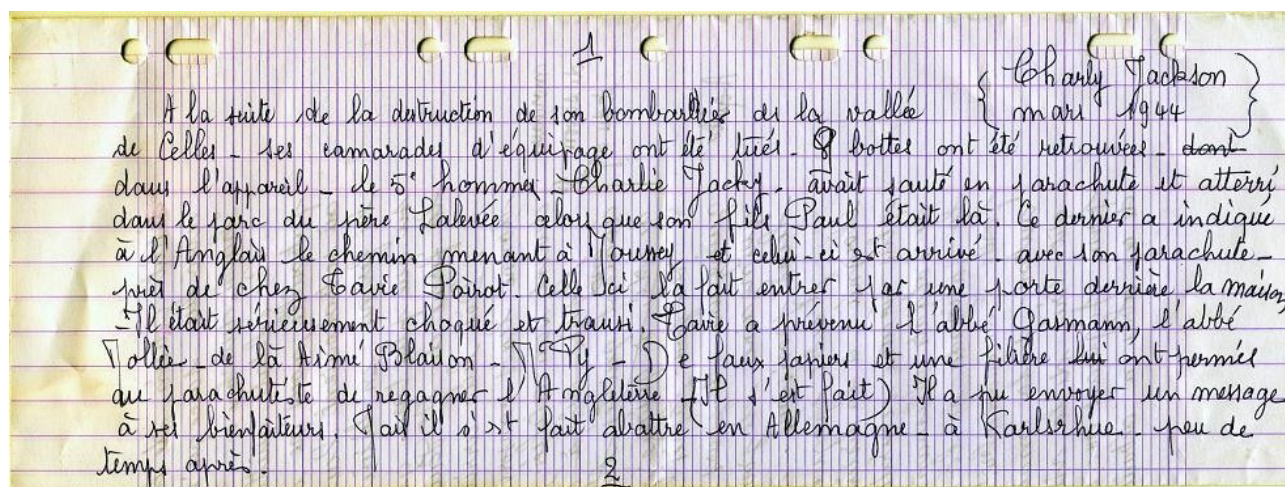 1
{ Charly Jackson
mars 1944 }
A la suite de la destruction de son bombardier ds la vallée
de Celles - ses camarades d'équipage ont été tués. 8 bottes ont été retrouvées - dont
dans l'appareil - le 5e homme, Charlie Jacky - avait sauté en parachute et atterri
dans le parc du père Lalevée alors que son fils Paul était là. Ce dernier a indiqué
à l'Anglais le chemin menant à Moussey et celui-ci est arrivé - avec son parachute -
près de chez Cavie Poirot. Celle ci l'a fait entrer par une porte derrière la maison
- Il était sérieusement choqué et transi. Cavie a prévenu l'abbé Gasmann, l'abbé
Mollée - de là Aimé Blaison - Py - De faux papiers et une filière lui ont permis
au parachutiste de regagner l'Angleterre - (Il s'est fait) Il a pu envoyer un message
à ses bienfaiteurs. Mais il s'est fait abattre en Allemagne - à Karlsrhue - peu de
temps après.
2